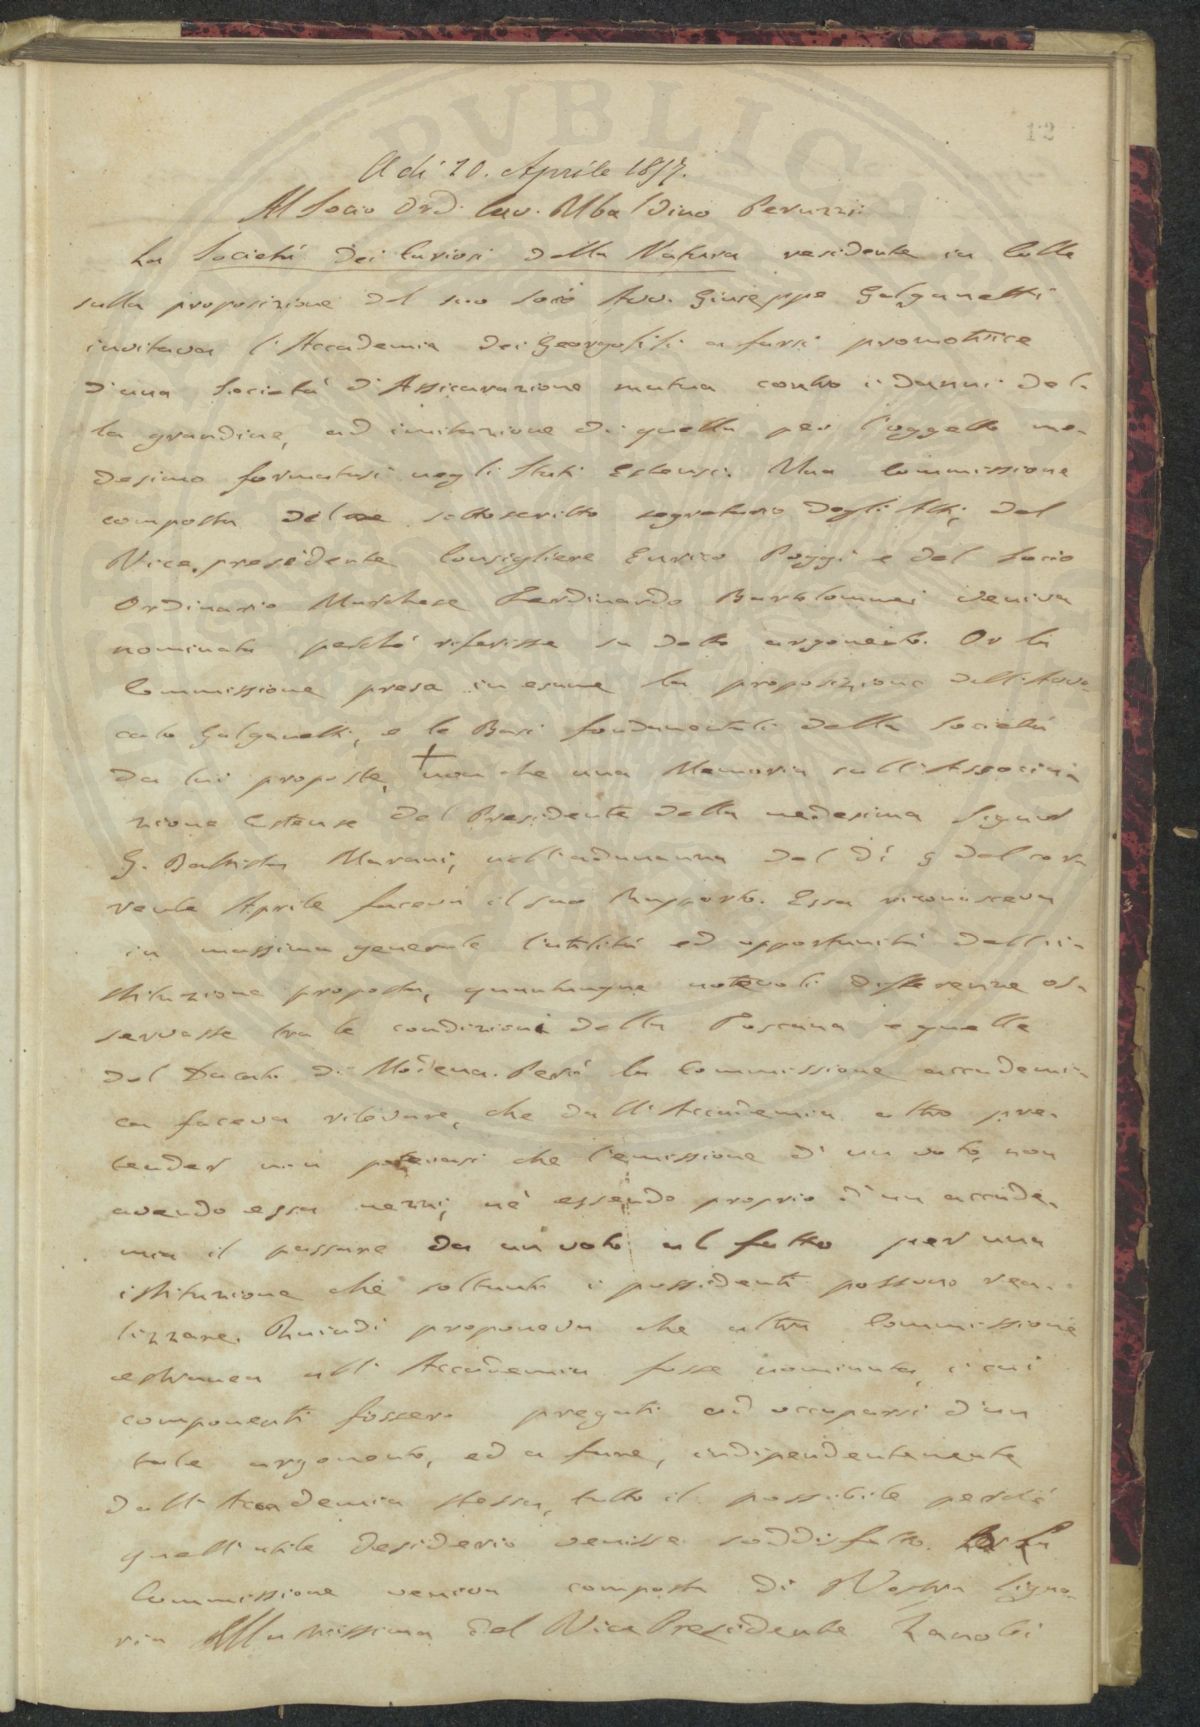 12
A dì 20. Aprile 1857.
Al Socio Ord. Cav. Ubaldino Peruzzi
La Società dei Curiosi della Natura residente in Colle
sulla proposizione del suo socio Avv. Giuseppe Galganetti
invitava l'Accademia dei Georgofili a farsi promotrice
d'una Società d'Assicurazione mutua contro i danni del-
la grandine, ad imitazione di quella per l'oggetto me-
desimo formatasi negli Stati Estensi. Una Commissione
composta del sottoscritto segretario degli Atti, del
Vice presidente Consigliere Enrico Poggi e del Socio
Ordinario Marchese Ferdinando Bartolommei veniva
nominata perchè riferisse su detto argomento. Or la
Commissione presa in esame la proposizione dell'Avvo-
cato Galganetti, e le Basi fondamentali della Società
da lui proposte, + non che una Memoria sull'Associa-
zione Estense del Presidente della medesima Signor
G. Battista Marani, nell'adunanza del dì 5 del cor-
rente Aprile faceva il suo Rapporto. Essa riconosceva
in massima generale l'utilità ed opportunità dell'i-
stituzione proposta, quantunque notevoli differenze os-
servasse tra le condizioni della Toscana e quelle
del Ducato di Modena. Però la Commissione accademi-
ca faceva rilevare, che dall'Accademia altro pre-
tender non potevasi che l'emissione d'un voto, non
avendo essa mezzi, nè essendo proprio d'un accade-
mia il passare da un voto al fatto per una
istituzione che soltanto i possidenti possono rea-
lizzare. Quindi proponeva che altra Commissione
estranea all'Accademia fosse nominata, i cui
componenti fossero pregati ad occuparsi d'un
tale argomento, ed a fare, indipendentemente
dall'Accademia stessa, tutto il possibile perchè
quell'utile desiderio venisse soddisfatto. La
Commissione veniva composta di Vostra Signo-
ria Illustrissima del Vice Presidente Zanobi